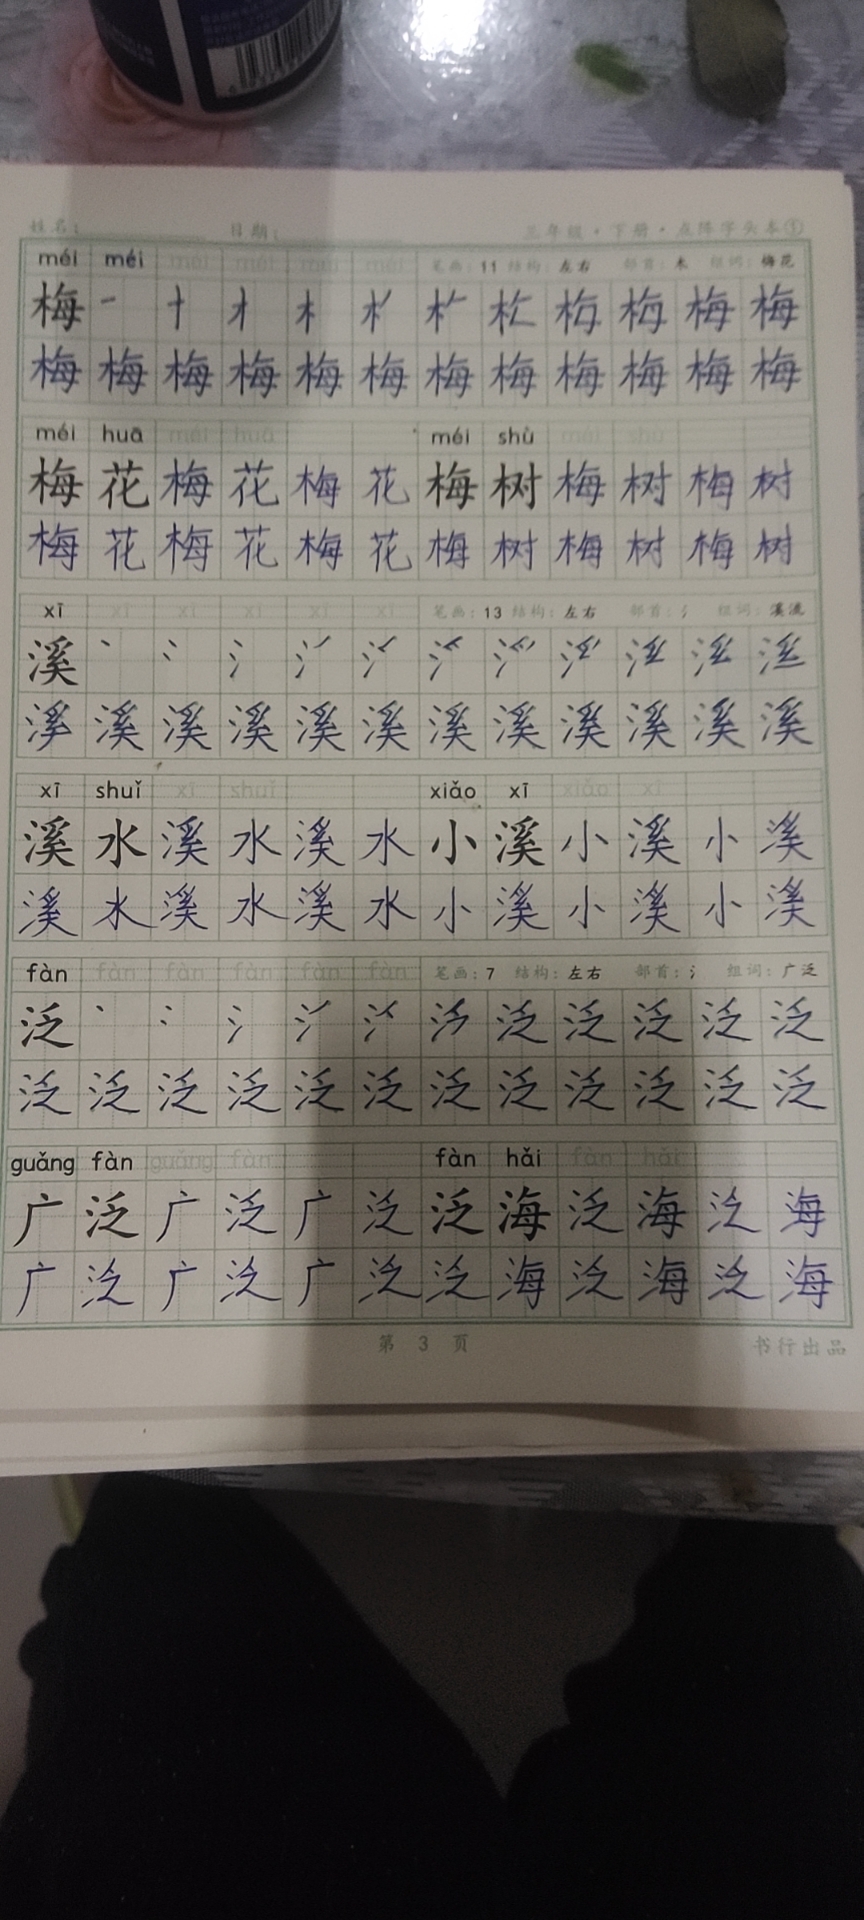 姓名： 日期： 三年级·下册·点阵字头本①
méi méi méi méi méi méi 笔画：11 结构：左右 部首：木 组词：梅花
梅 一 十 才 木 梅 梅 梅
梅 梅 梅 梅 梅 梅 梅 梅 梅 梅 梅 梅
méi huā méi huā méi shù méi shù
梅 花 梅 花 梅 花 梅 树 梅 树 梅 树
梅 花 梅 花 梅 花 梅 树 梅 树 梅 树
xī xī xī xī xī xī 笔画：13 结构：左右 部首：氵 组词：溪流
溪 丶 冫 氵
溪 溪 溪 溪 溪 溪 溪 溪 溪 溪 溪
xī shuǐ xī shuǐ xiǎo xī xiǎo xī
溪 水 溪 水 溪 水 小 溪 小 溪 小 溪
溪 水 溪 水 溪 水 小 溪 小 溪 小 溪
fàn fàn fàn fàn fàn fàn 笔画：7 结构：左右 部首：氵 组词：广泛
泛 丶 冫 氵 泛 泛 泛 泛 泛
泛 泛 泛 泛 泛 泛 泛 泛 泛 泛 泛 泛
guǎng fàn guǎng fàn fàn hǎi fàn hǎi
广 泛 广 泛 广 泛 泛 海 泛 海 泛 海
广 泛 广 泛 广 泛 泛 海 泛 海 泛 海
第 3 页
书行出品